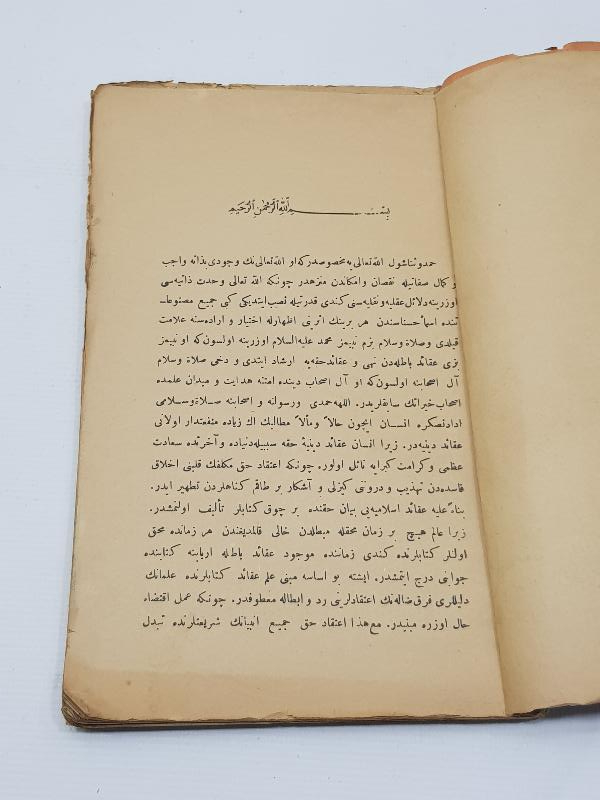 بسم الله الرحمن الرحيم
حمد وثنا شول الله تعالى‌يه مخصوصدركه او الله تعالى‌نك وجودى بذاته واجب
و كمال صفاتيله نقصان وامكاندن منزهدر چونكه الله تعالى وحدت ذاتيه‌سى
اوزرينه دلائل عقليه ونقليه‌سنى كندى قدرتيله نصب ايتديكى كبى جميع مصنوعا
تنده اسماء حسناسندن هر برينك اثرينى اظهارله اختيار و اراده‌سنه علامت
قيلدى وصلاة وسلام بزم نبيمز محمد عليه‌السلام اوزرينه اولسون‌كه او نبيمز
بزى عقائد باطله‌دن نهى و عقائد حقه‌يه ارشاد ايتدى و دخى صلاة وسلام
آل اصحابنه اولسون‌كه او آل اصحاب دينده امتنه هدايت و ميدان علمده
اصحاب خيراتك سابقلريدر. اللهه حمدى ورسولنه و اصحابنه صلاة وسلامى
ادادنصكره انسان ايچون حالاً ومآلاً مطالبك اك زياده منفعتدار اولانى
عقائد دينيه‌در. زيرا انسان عقائد دينيهٔ حقه سببيله دنياده و آخرنده سعادت
عظمى وكرامت كبرايه نائل اولور. چونكه اعتقاد حق مكلفك قلبنى اخلاق
فاسده‌دن تهذيب و درونى كيزلى و آشكار بر طاقم كناهلردن تطهير ايدر.
بناءً عليه عقائد اسلاميه‌يى بيان حقنده بر چوق كتابلر تأليف اولنمشدر.
زيرا عالم هيچ بر زمان محقله مبطلدن خالى قالمديغندن هر زمانده محق
اولنلر كتابلرنده كندى زماننده موجود عقائد باطله اربابنه كتابنده
جوابى درج ايتمشدر. ايشته بو اساسه مبنى علم عقائد كتابلرنده علمانك
دليللرى فرق ضاله‌نك اعتقادلرينى رد و ابطاله معطوفدر. چونكه عمل اقتضاء
حال اوزره مبنيدر. مع‌هذا اعتقاد حق جميع انبيانك شريعتلرنده تبدل